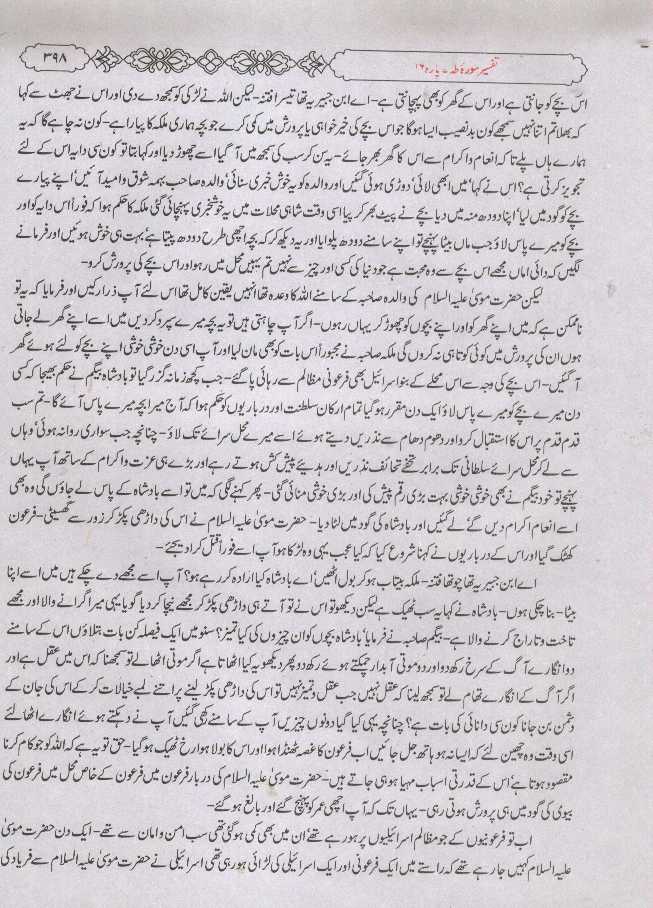 تفسیر سورۂ طہٰ۔ پارہ ۱۶
۳۹۸
اس بچے کو جانتی ہے اور اس کے گھر کو بھی پہچانتی ہے۔ اے ابن جبیر یہ تھا تیسرا فتنہ۔ لیکن اللہ نے لڑکی کو سمجھ دے دی اور اس نے جھٹ سے کہا
کہ بھلا تم اتنا نہیں سمجھے کون بد نصیب ایسا ہو گا جو اس بچے کی خیر خواہی یا پرورش میں کمی کرے جو بچہ ہماری ملکہ کا پیارا ہے۔ کون نہ چاہے گا کہ یہ
ہمارے ہاں پلے تاکہ انعام واکرام سے اس کا گھر بھر جائے۔ یہ سن کر سب کی سمجھ میں آ گیا اسے چھوڑ دیا اور کہا بتا تو کون سی دایہ اس کے لئے
تجویز کرتی ہے؟ اس نے کہا ٗ میں ابھی لائی ٗ دوڑی ہوئی گئیں اور والدہ کو یہ خوش خبری سنائی ٗ والدہ صاحبہ بہمہ شوق وامید آئیں ٗ اپنے پیارے
بچے کو گود میں لیا ٗ اپنا دودھ منہ میں دیا بچے نے پیٹ بھر کر پیا اسی وقت شاہی محلات میں یہ خوشخبری پہنچائی گئی ملکہ کا حکم ہوا کہ فوراً اس دایہ کو اور
بچے کو میرے پاس لاؤ جب ماں بیٹا پہنچے تو اپنے سامنے دودھ پلوایا اور یہ دیکھ کر کہ بچہ اچھی طرح دودھ پیتا ہے ٗ بہت ہی خوش ہوئیں اور فرمانے
لگیں کہ دائی اماں مجھے اس بچے سے وہ محبت ہے جو دنیا کی کسی اور چیز سے نہیں تم یہیں محل میں رہو اور اس بچے کی پرورش کرو۔
لیکن حضرت موسیٰ علیہ السلام کی والدہ صاحبہ کے سامنے اللہ کا وعدہ تھا انہیں یقین کامل تھا اس لئے آپ ذرا رکیں اور فرمایا کہ یہ تو
ناممکن ہے کہ میں اپنے گھر کو اور اپنے بچوں کو چھوڑ کر یہاں رہوں۔ اگر آپ چاہتی ہیں تو یہ بچہ میرے سپرد کر دیں میں اسے اپنے گھر لے جاتی
ہوں ان کی پرورش میں کوئی کوتاہی نہ کروں گی ملکہ صاحبہ نے مجبوراً اس بات کو بھی مان لیا اور آپ اسی دن خوشی خوشی اپنے بچے کو لئے ہوئے گھر
آ گئیں۔ اس بچے کی وجہ سے اس محلے کے بنو اسرائیل بھی فرعونی مظالم سے رہائی پا گئے۔ جب کچھ زمانہ گزر گیا تو بادشاہ بیگم نے حکم بھیجا کہ کسی
دن میرے بچے کو میرے پاس لاؤ ایک دن مقرر ہو گیا تمام ارکان سلطنت اور درباریوں کو حکم ہوا کہ آج میرا بچہ میرے پاس آئے گا۔ تم سب
قدم قدم پر اس کا استقبال کرو اور دھوم دھام سے نذریں دیتے ہوئے اسے میرے محل سرائے تک لاؤ۔ چنانچہ جب سواری روانہ ہوئی ٗ وہاں
سے لے کر محل سرائے سلطانی تک برابر تحفے تحائف نذریں اور ہدیئے پیش کش ہوتے رہے اور بڑے ہی عزت واکرام کے ساتھ آپ یہاں
پہنچے تو خود بیگم نے بھی خوشی خوشی بہت بڑی رقم پیش کی اور بڑی خوشی منائی گئی۔ پھر کہنے لگی کہ میں تو اسے بادشاہ کے پاس لے جاؤں گی وہ بھی
اسے انعام اکرام دیں گے لے گئیں اور بادشاہ کی گود میں لٹا دیا۔ حضرت موسیٰ علیہ السلام نے اس کی داڑھی پکڑ کر زور سے گھسیٹی۔ فرعون
کھٹک گیا اور اس کے درباریوں نے کہنا شروع کیا کہ کیا عجب یہی وہ لڑکا ہو آپ اسے فوراً قتل کرا دیجئے۔
اے ابن جبیر یہ تھا چوتھا فتنہ۔ ملکہ بیتاب ہو کر بول اٹھیں ٗ اے بادشاہ کیا ارادہ کر رہے ہو؟ آپ اسے مجھے دے چکے ہیں میں اسے اپنا
بیٹا۔ بنا چکی ہوں۔ بادشاہ نے کہا یہ سب ٹھیک ہے لیکن دیکھو تو اس نے تو آتے ہی داڑھی پکڑ کر مجھے نیچا کر دیا گویا یہی میرا گرانے والا اور مجھے
تاخت و تاراج کرنے والا ہے۔ بیگم صاحبہ نے فرمایا ٗ بادشاہ بچوں کو ان چیزوں کی کیا تمیز؟ سنو میں ایک فیصلہ کن بات بتلاؤں اس کے سامنے
دو انگارے آگ کے سرخ رکھ دو اور دو موتی آبدار چمکتے ہوئے رکھ دو پھر دیکھو یہ کیا اٹھاتا ہے اگر موتی اٹھا لے تو سمجھنا کہ اس میں عقل ہے اور
اگر آگ کے انگارے تھام لے تو سمجھ لینا کہ عقل نہیں جب عقل وتمیز نہیں تو اس کی داڑھی پکڑ لینے پر اتنے لمبے خیالات کر کے اس کی جان کے
دشمن بن جانا کون سی دانائی کی بات ہے؟ چنانچہ یہی کیا گیا دونوں چیزیں آپ کے سامنے رکھی گئیں آپ نے دہکتے ہوئے انگارے اٹھا لئے
اسی وقت وہ چھین لئے کہ ایسا نہ ہو ہاتھ جل جائیں اب فرعون کا غصہ ٹھنڈا ہوا اور اس کا بولا ہوا رخ ٹھیک ہو گیا۔ حق تو یہ ہے کہ اللہ کو جو کام کرنا
مقصود ہوتا ہے ٗ اس کے قدرتی اسباب مہیا ہو ہی جاتے ہیں۔ حضرت موسیٰ علیہ السلام کی دربار فرعون میں فرعون کے خاص محل میں فرعون کی
بیوی کی گود میں ہی پرورش ہوتی رہی۔ یہاں تک کہ آپ اچھی عمر کو پہنچ گئے اور بالغ ہو گئے۔
اب تو فرعونیوں کے جو مظالم اسرائیلیوں پر ہو رہے تھے ٗ ان میں بھی کمی ہو گئی تھی سب امن وامان سے تھے۔ ایک دن حضرت موسیٰ
علیہ السلام کہیں جا رہے تھے کہ راستے میں ایک فرعونی اور ایک اسرائیلی کی لڑائی ہو رہی تھی اسرائیلی نے حضرت موسیٰ علیہ السلام سے فریاد کی